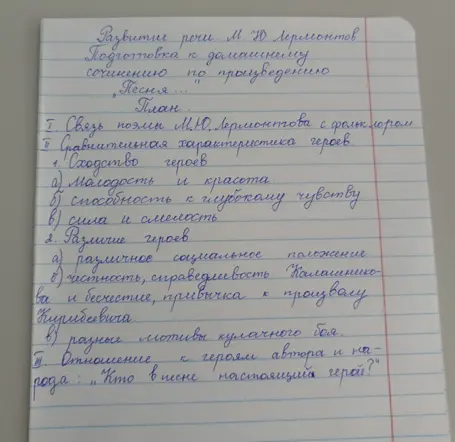 Развитие речи М Ю Лермонтов
Подготовка к домашнему
сочинению по произведению
„Песня..."
План.
I. Связь поэмы М.Ю.Лермонтова с фольклором
II Сравнительная характеристика героев.
1. Сходство героев
а) молодость и красота
б) способность к глубокому чувству
в) сила и смелость
2. Различие героев
а) различное социальное положение
б) честность, справедливость Калашнико-
ва и бесчестие, привычка к произволу
Кирибеевича
в) разные мотивы кулачного боя.
III. Отношение к героям автора и на-
рода: „Кто в песне настоящий герой?"